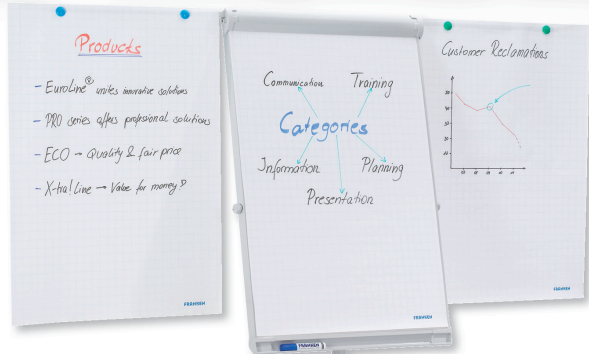 Products
- EuroLine® unites innovative solutions
- PRO series offers professional solutions
- ECO → Quality & fair price
- X-tra! Line → Value for money
FRANKEN
Communication
Training
Categories
Information
Planning
Presentation
FRANKEN
FRANKEN
Customer Reclamations
FRANKEN